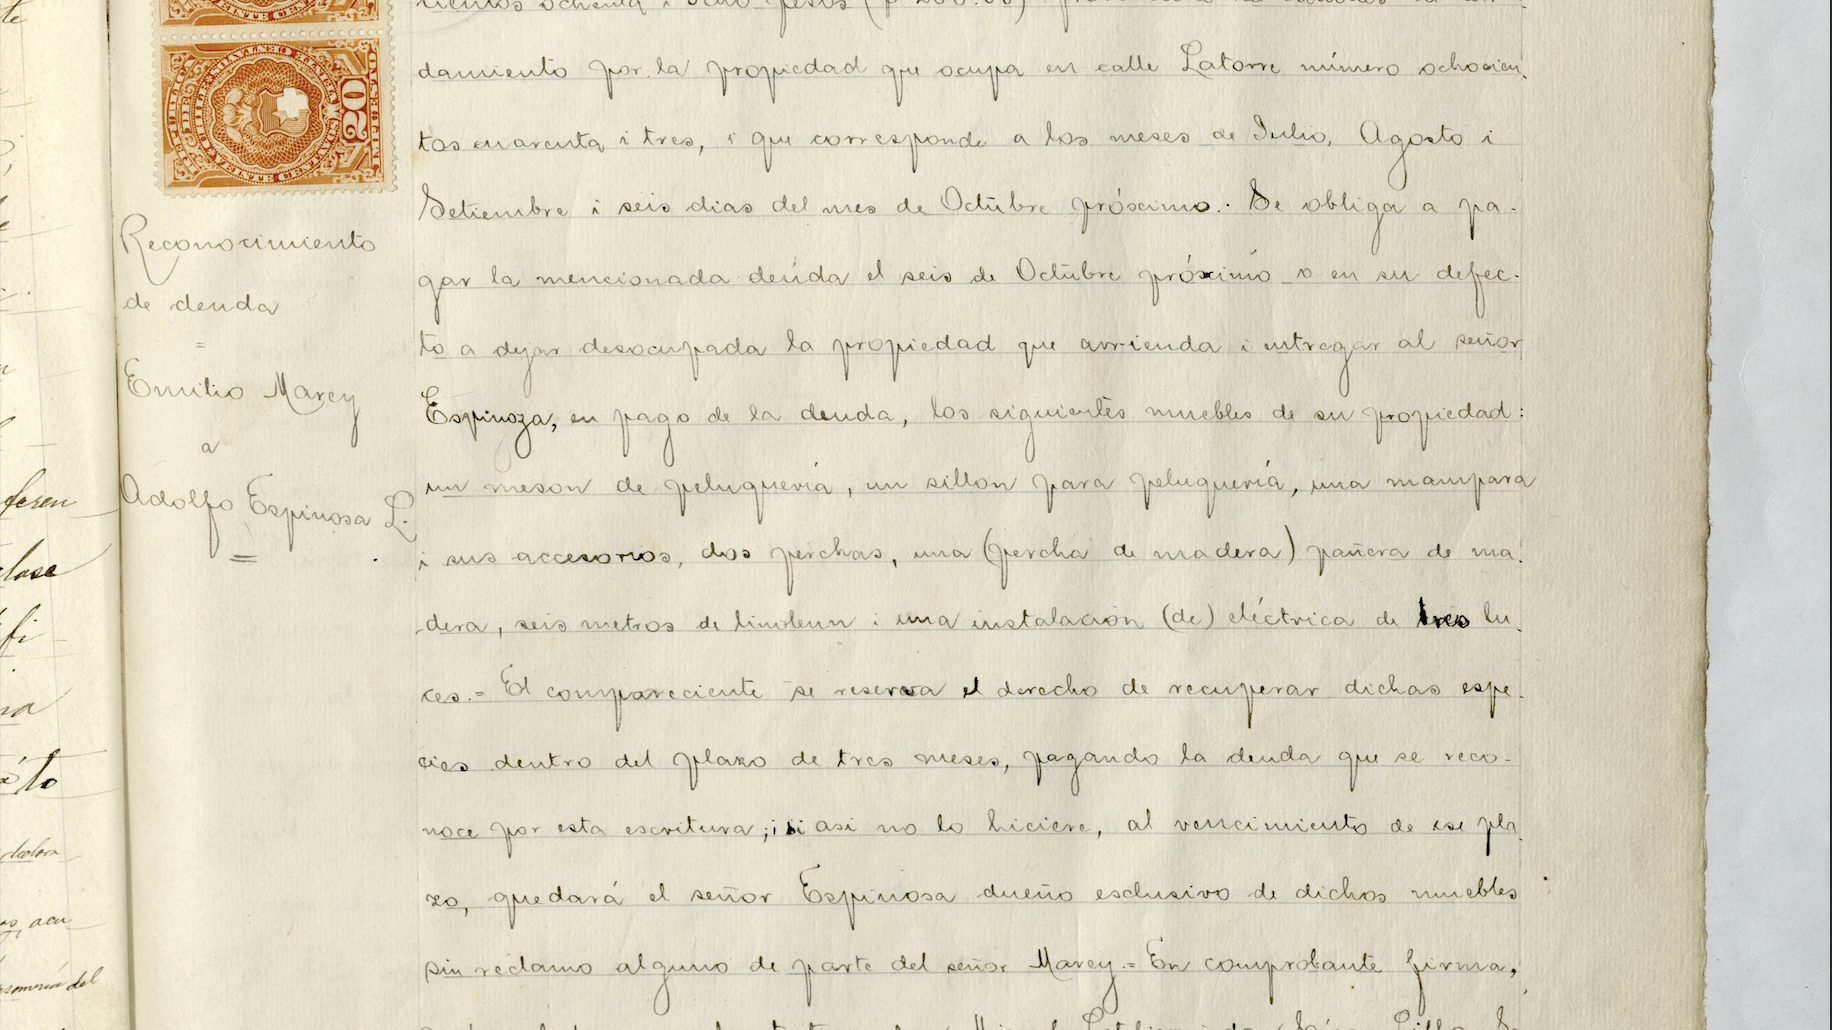 cientos ochenta i ocho pesos
damiento por la propiedad que ocupa en calle Latorre número ochocien
tos cuarenta i tres, i que corresponde a los meses de Julio, Agosto i
Setiembre i seis dias del mes de Octubre próximo. Se obliga a pa-
gar la mencionada deuda el seis de Octubre próximo o en su defec-
to a dejar desocupada la propiedad que arrienda i entregar al señor
Espinoza, en pago de la deuda, los siguientes muebles de su propiedad:
un meson de peluquería, un sillon para peluquería, una mampara
i sus accesorios, dos perchas, una (percha de madera) pañera de ma-
dera, seis metros de linoleun i una instalación (de) eléctrica de tres lu-
ces.= El compareciente se reserva el derecho de recuperar dichas espe-
cies dentro del plazo de tres meses, pagando la deuda que se reco-
noce por esta escritura; i si asi no lo hiciere, al vencimiento de ese pla-
zo, quedará el señor Espinosa dueño esclusivo de dichos muebles
sin reclamo alguno de parte del señor Marcy.= En comprobante firma,
Reconocimiento
de deuda
=
Emilio Marcy
a
Adolfo Espinosa L.
=
20
feren
clase
fi
to
del